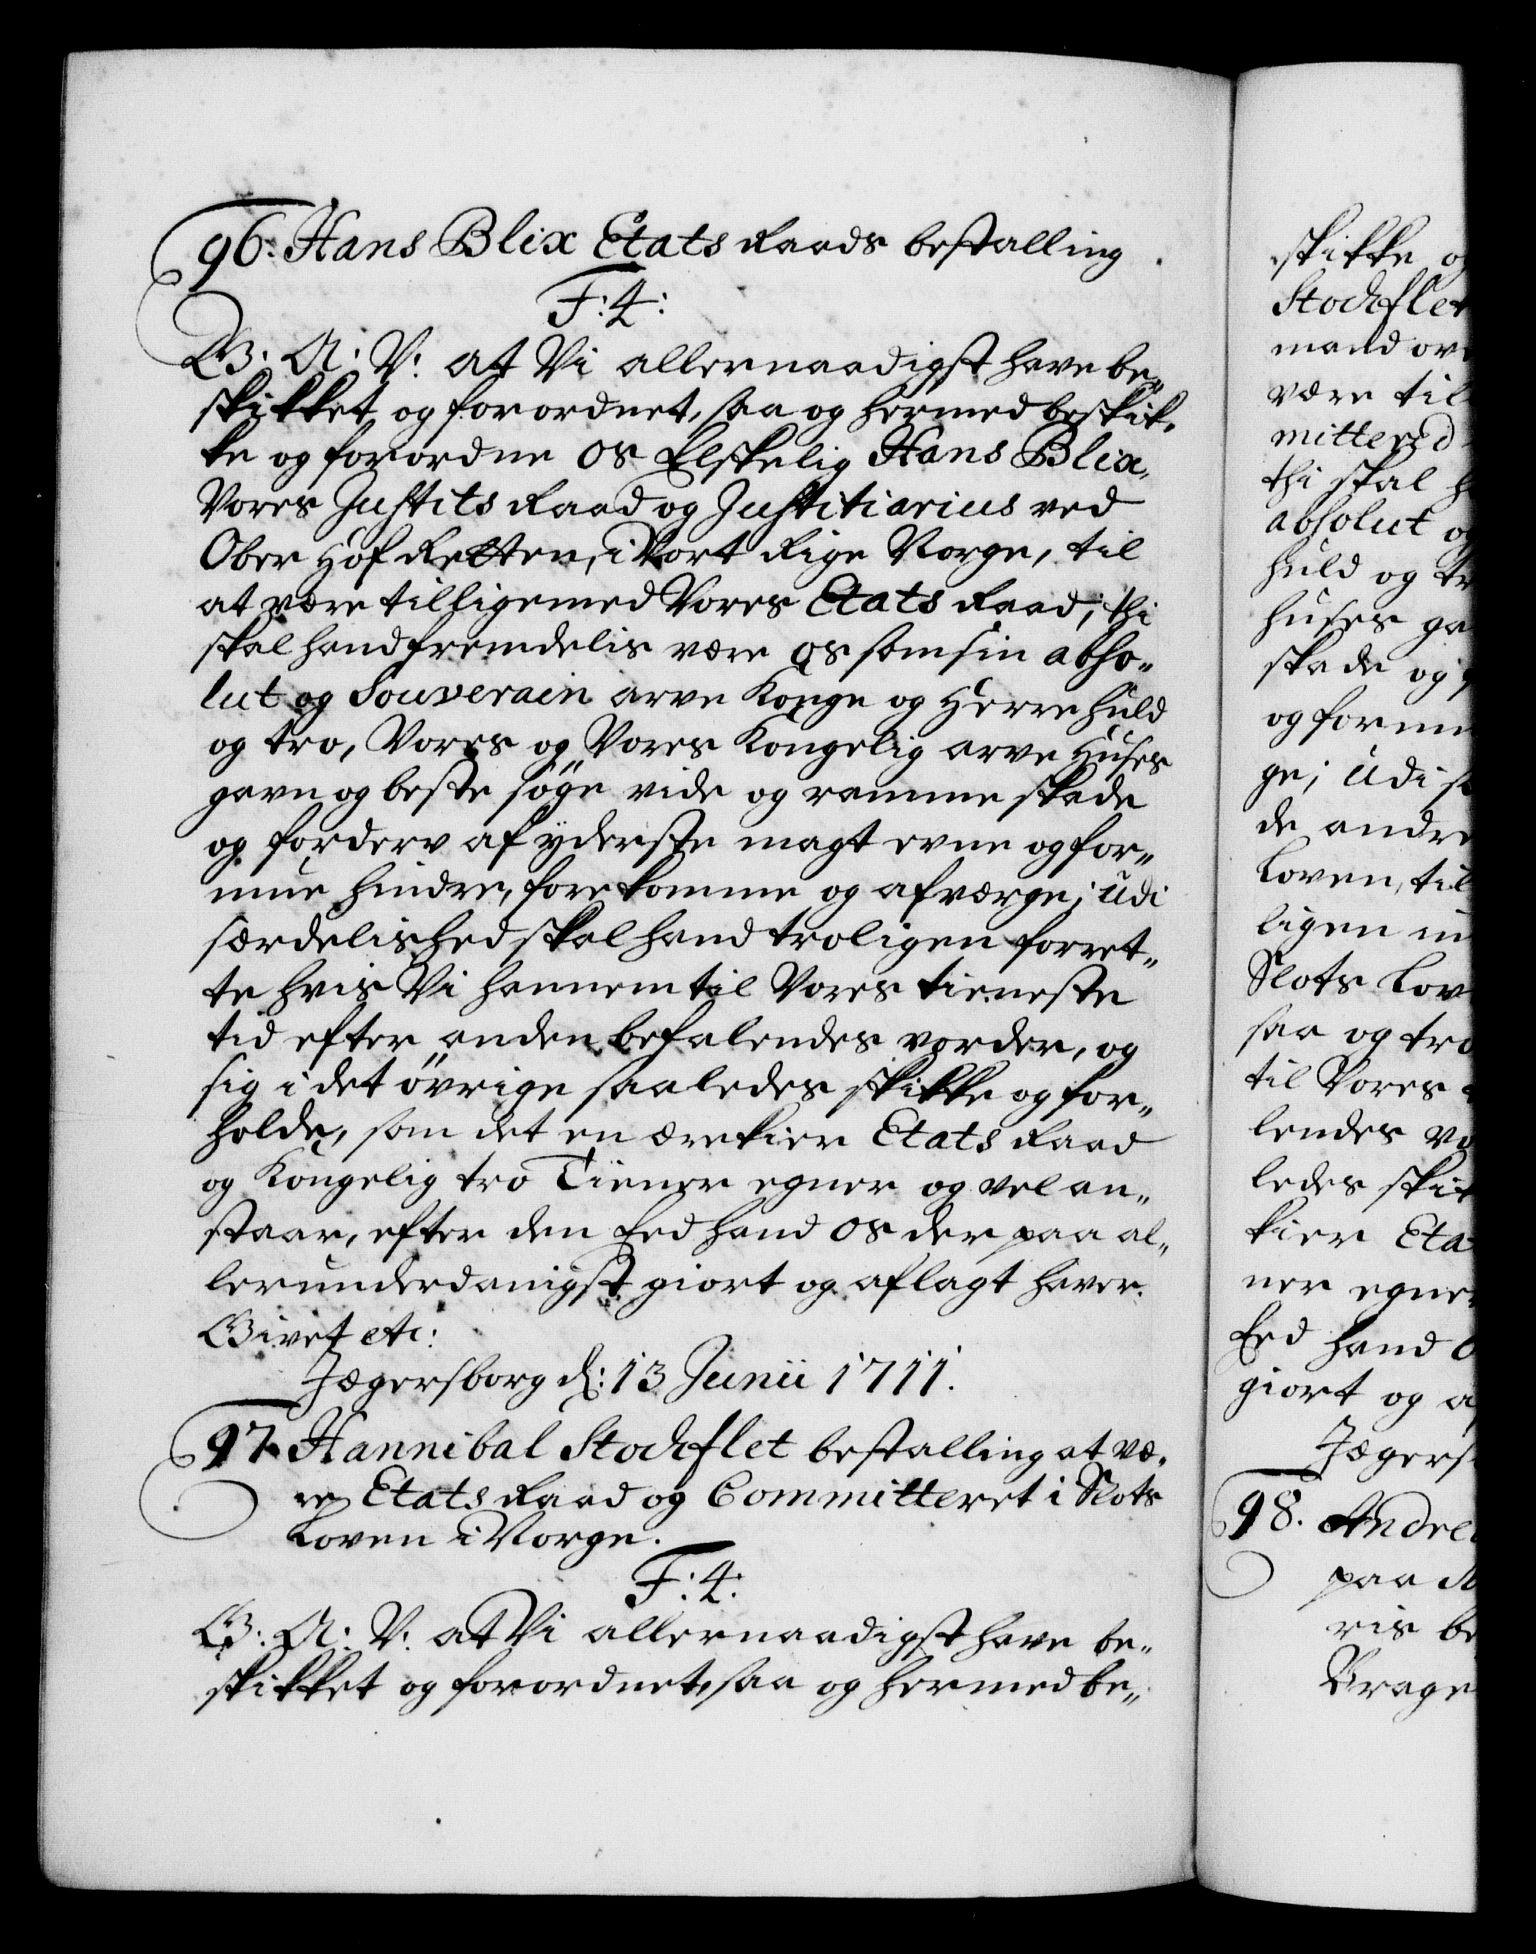 96. Hans Blix Etats Raads bestalling
F: 4:
G. A. V. at Vi allernaadigst have be„
skikket og forordnet, saa og hermed beskik„
ke og forordne os Elskelig Hans Blix,
Vores Justits Raad og Justitiarius ved
Ober Hof Retten, i Vort Rige Norge, til
at være tilligemed Vores Etats Raad; thi
skal hand fremdelis være os som sin abso„
lut og Souverain arve Konge og Herre huld
og tro, Vores og Vores Kongelig arve Huses
gavn og beste søge vide og ramme skade
og forderv af yderste magt evne og for„
mue hindre, forekomme og afværge; udi
særdelished skal hand troligen forret„
te hvis Vi hannem til Vores tieneste
tid efter anden befalendes vorder, og
sig i det øvrige saaledes skikke og for„
holde, som det en ærekier Etats Raad
og Kongelig tro Tiener egner og vel an„
staar, efter den Eed hand os der paa al„
lerunderdanigst giort og aflagt haver.
Givet etc:
Jægersborg d: 13 Junii 1711.
97. Hannibal Stockflet bestalling at væ„
re Etats Raad og Committeret i Slots
Loven i Norge.
F: 4:
G. A. V. at Vi allernaadigst have be„
skikket og forordnet, saa og hermed be„
skikke og
Stockflet
mand ov
være til
mittered
thi skal h
absolut og
huld og tr
huses ga
skade og
og formu
ge; udi s
de andre
Loven, til
ligen in
Slots Lov
saa og tro
til Vores
lendes vo
ledes skik
kier Eta
ner egner
Eed hand O
giort og a
Jægers
98. Andre
paa
ris be
Brage